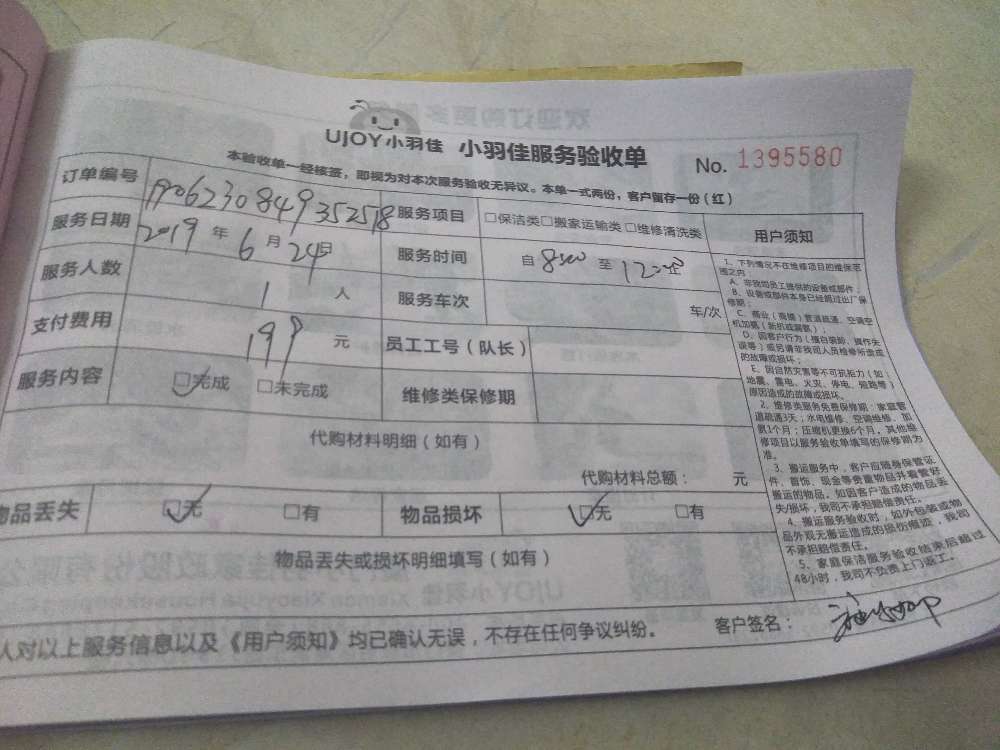 UJOY小羽佳 小羽佳服务验收单 No. 1395580
本验收单一经核签，即视为对本次服务验收无异议。本单一式两份，客户留存一份（红）
订单编号 服务项目 □保洁类□搬家运输类□维修清洗类 用户须知
服务日期 2019 年 6 月 24日 服务时间 自 至
服务人数 1 人 服务车次 车/次
支付费用 199 元 员工工号（队长）
服务内容 □完成 □未完成 维修类保修期
代购材料明细（如有）
代购材料总额： 元
物品丢失 □无 □有 物品损坏 □无 □有
物品丢失或损坏明细填写（如有）
人对以上服务信息以及《用户须知》均已确认无误，不存在任何争议纠纷。 客户签名：
1、下列情况不在维修项目的维保范
围之内：
A、非我司员工提供的设备或部件；
B、设备或部件本身已经超过出厂保
修期；
C、商业（商铺）管道疏通、空调空
机加氟（新机或漏氟）；
D、因客户行为（擅自装卸、操作失
误等）或另请非我司人员检修所造成
的故障或损坏；
E、因自然灾害等不可抗拒力（如：
地震、雷电、火灾、停电、短路等）
原因造成的故障或损坏。
2、维修类服务免费保修期：家庭管
道疏通3天；水电维修、空调维修、加
氟1个月；压缩机更换6个月，其他维
修项目以服务验收单填写的保修期为
准。
3、搬运服务中，客户应随身保管证
件、首饰、现金等贵重物品并看管好
搬运的物品。如因客户造成的物品丢
失/损坏，我司不承担赔偿责任。
4、搬运服务验收时，如外包装或物
品外观无搬运造成的损伤痕迹，我司
不承担赔偿责任。
5、家庭保洁服务验收结束后超过
48小时，我司不负责上门返工。